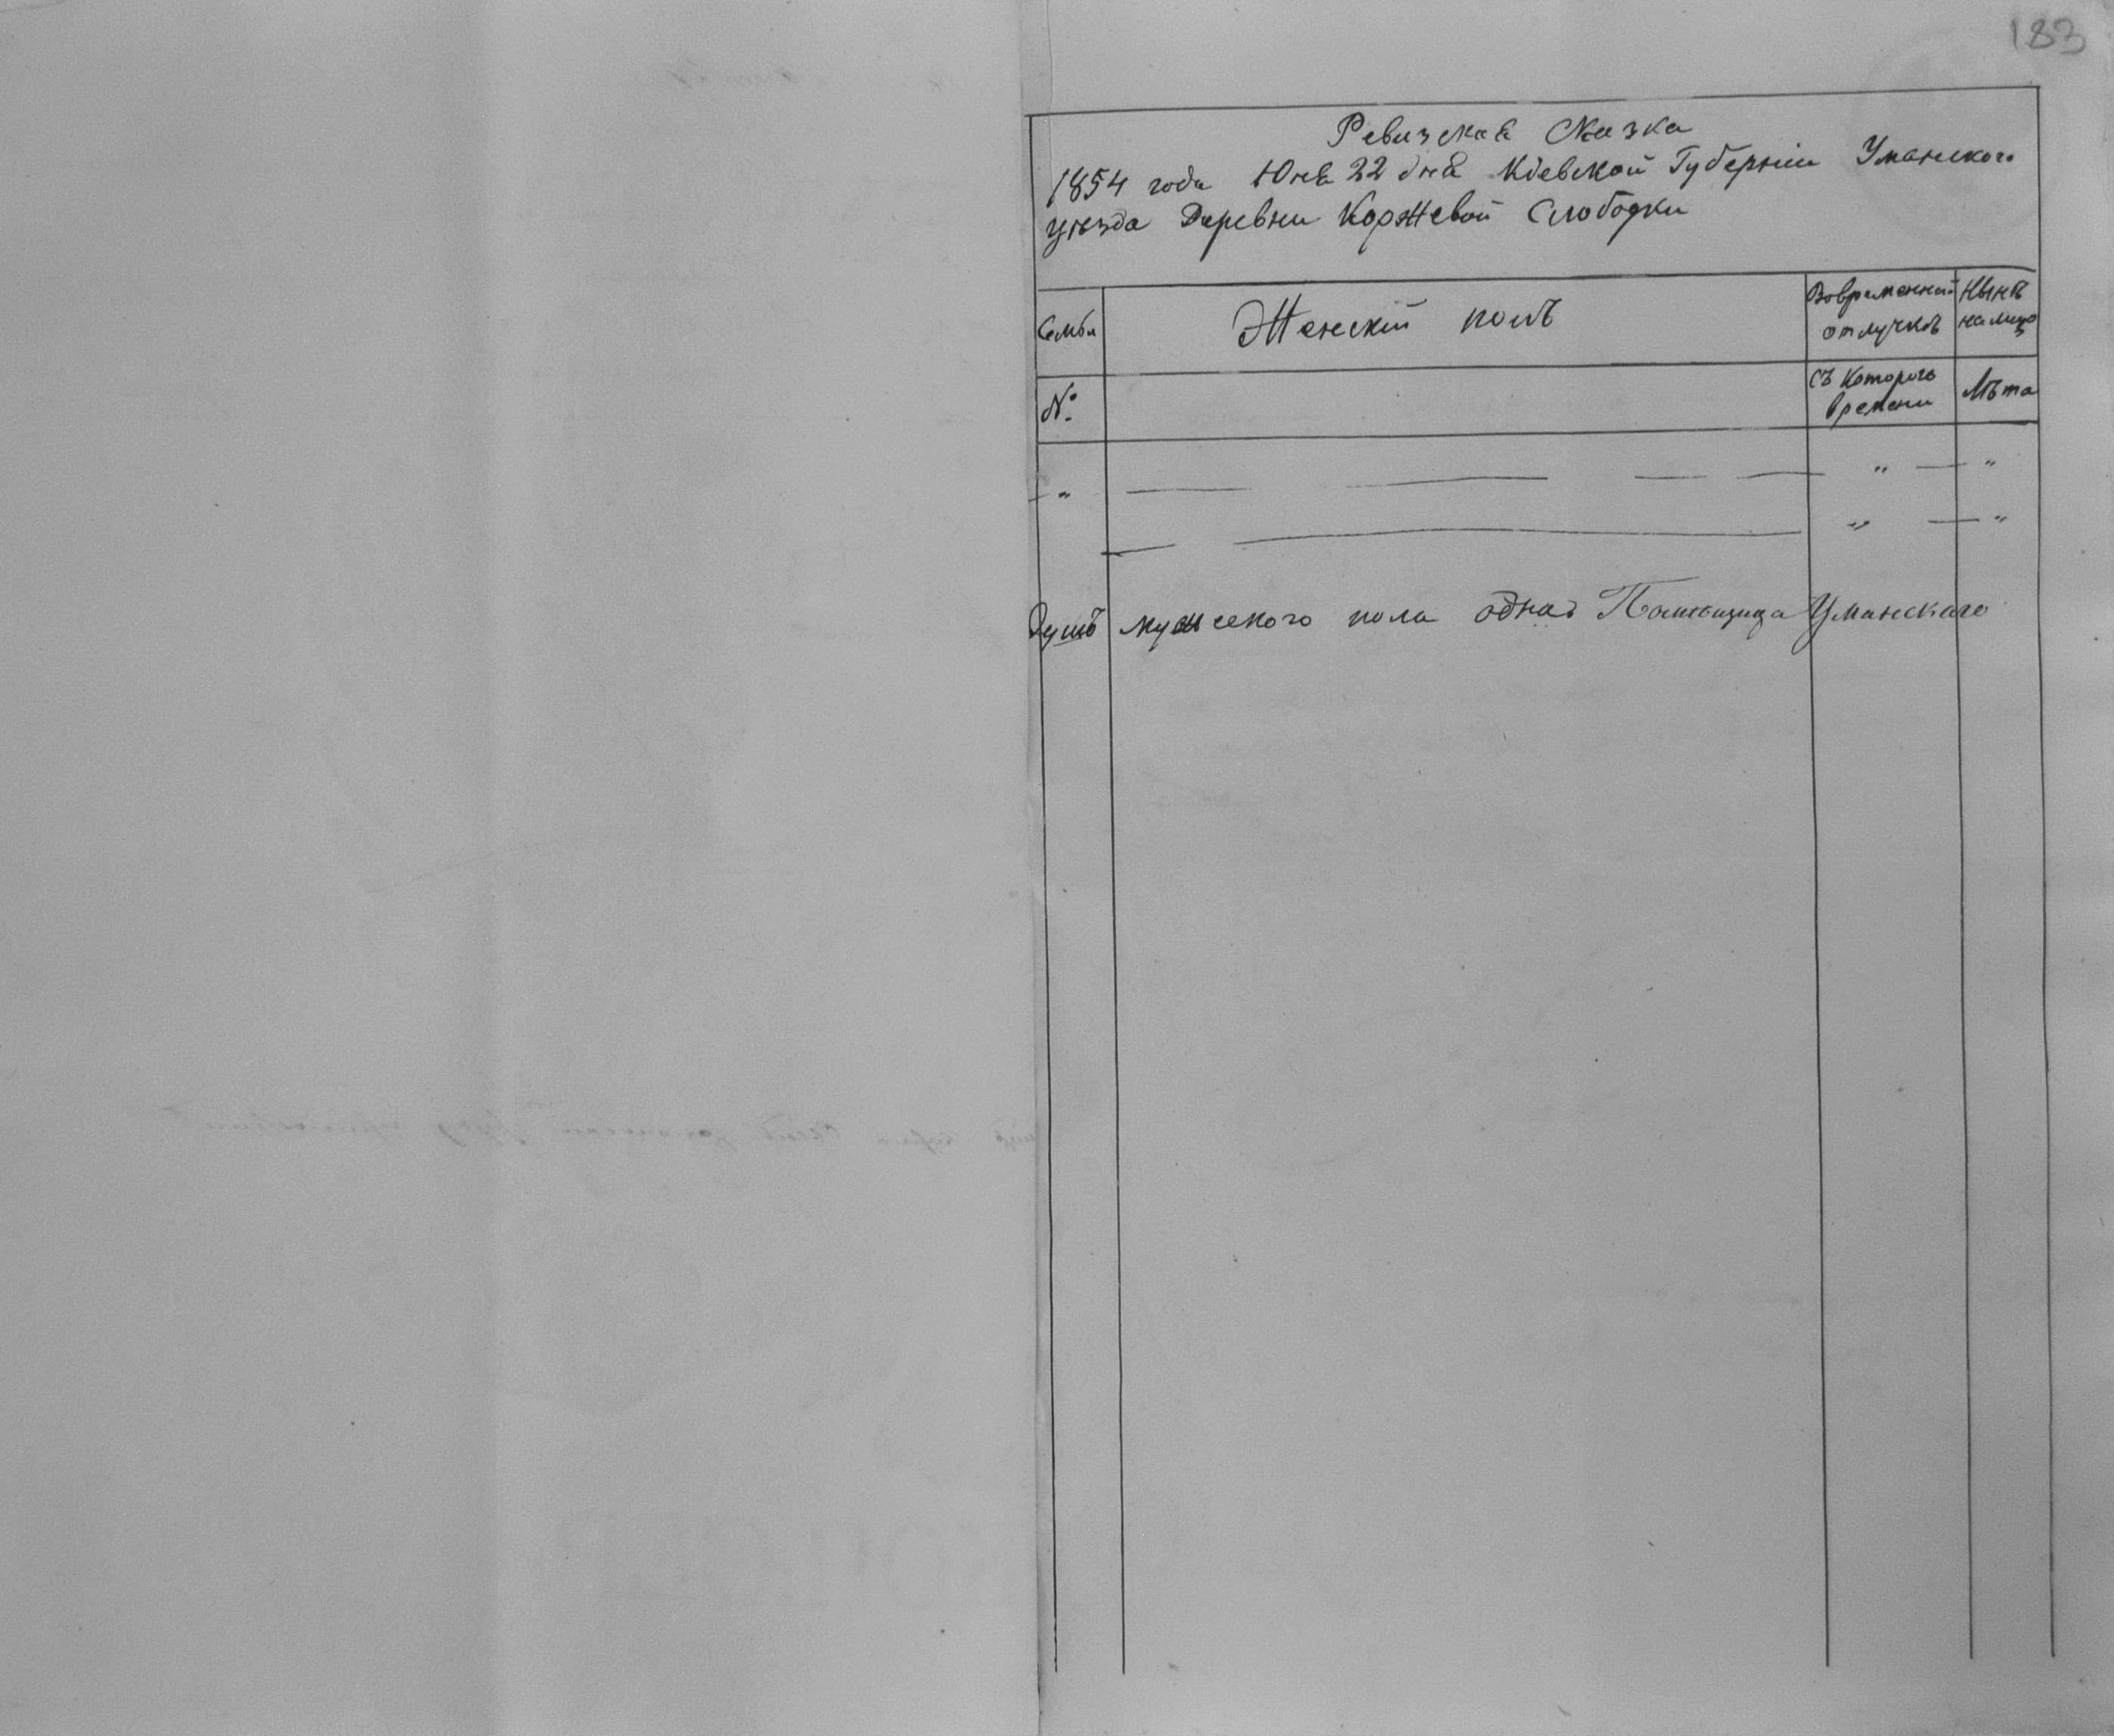 183
Ревизская Сказка
1854 года Юня 22 дня Кіевской Губерніи Уманского
уѣзда Деревни Коржевой Слободки
Семьи
Женскій полъ
Вовременной отлучкѣ
Нынѣ на лицо
№
Съ которого времени
Лѣта
" " "
" "
Душъ мужеского пола одна Помѣщица Уманскаго